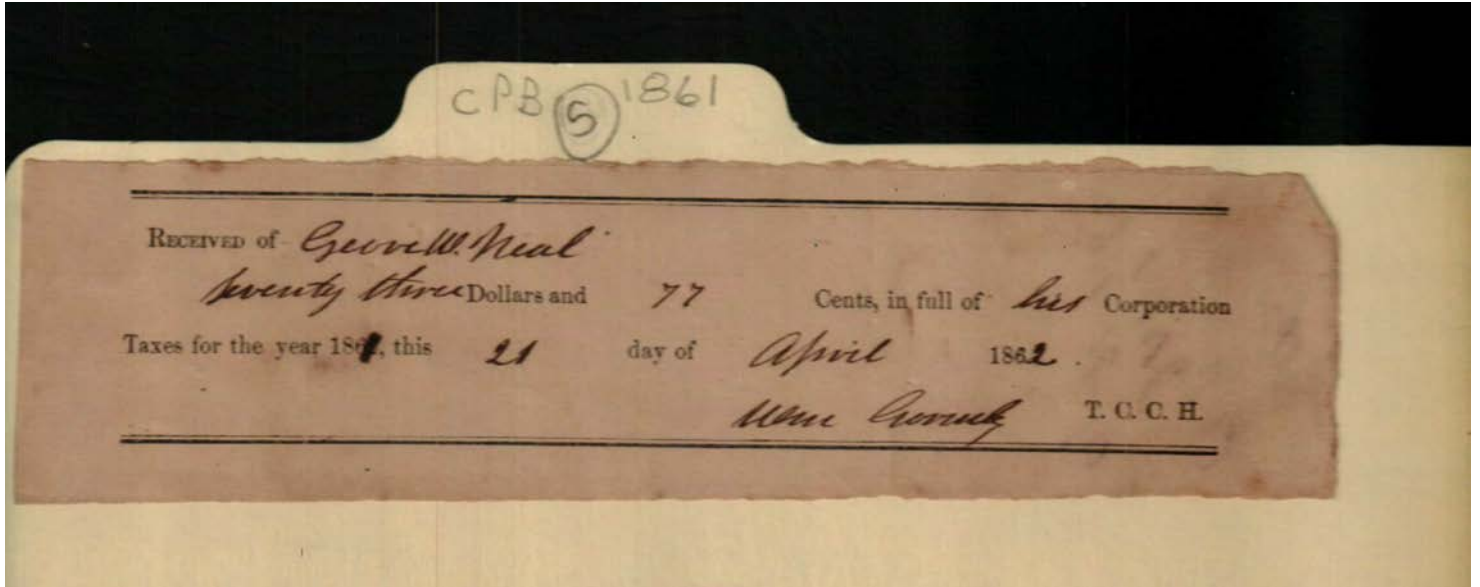 CPB 5 1861
RECEIVED of George W. Neal
seventy three Dollars and 77 Cents, in full of his Corporation
Taxes for the year 1861, this 21 day of April 1862.
Wm T. C. C. H.